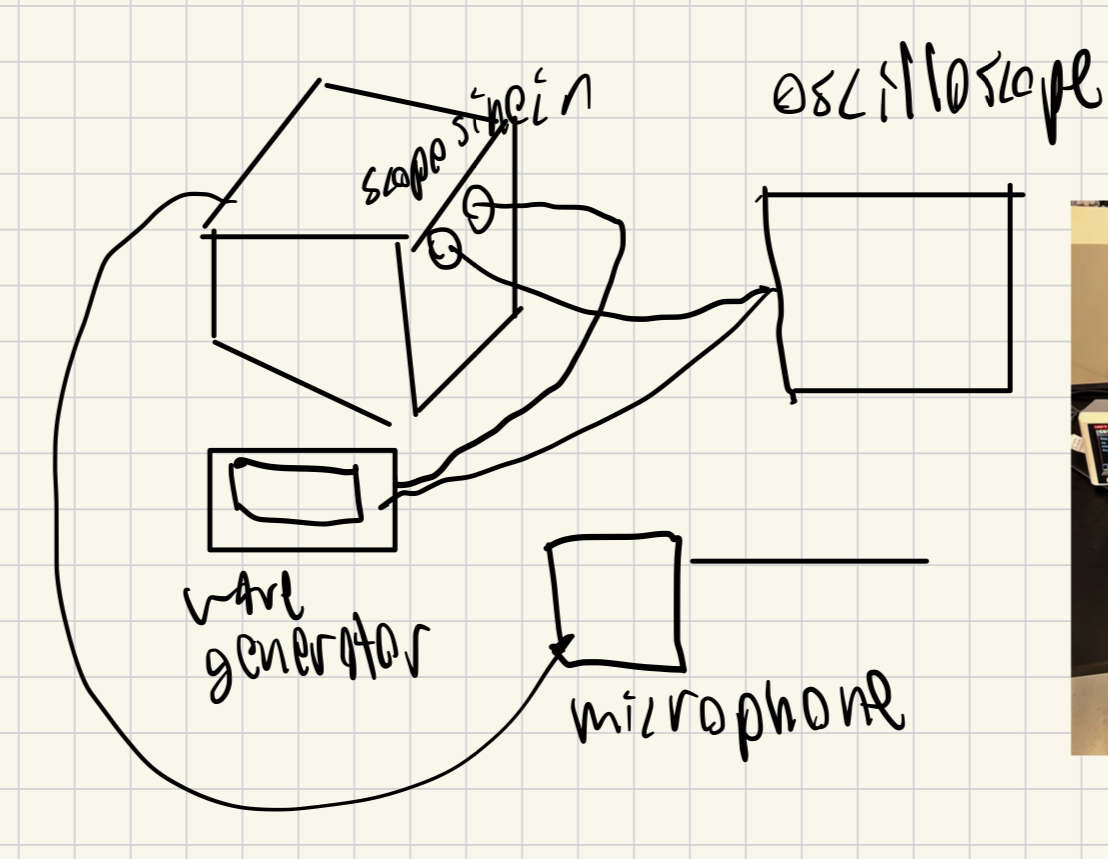 oscilloscope
scope sine in
wave
generator
microphone